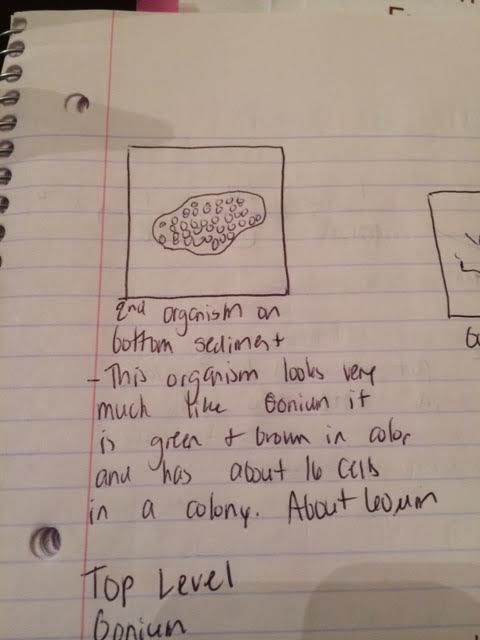 2nd organism on
bottom sediment
- This organism looks very
much like Gonium it
is green + brown in color
and has about 16 cells
in a colony. About 60um
Top Level
Gonium